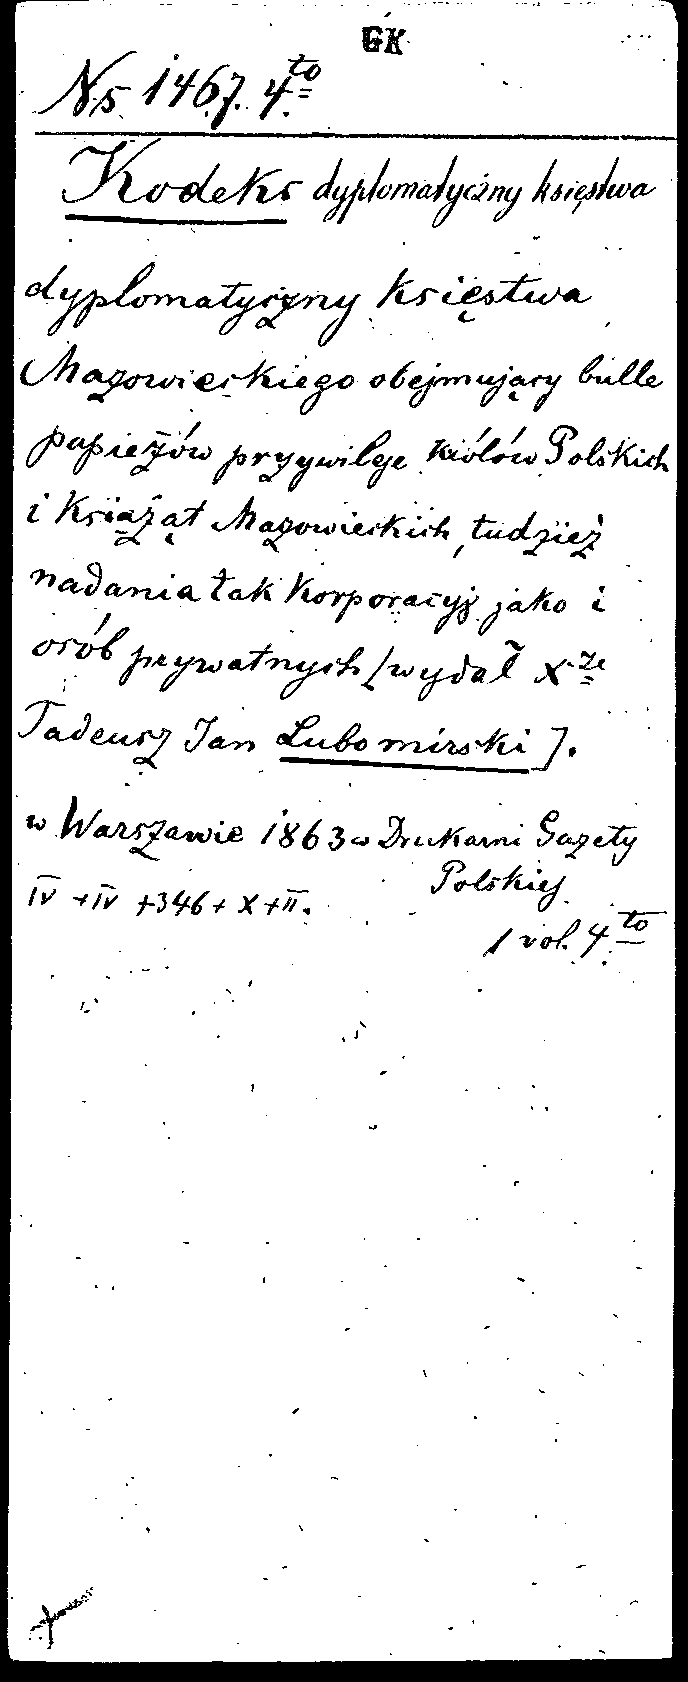 GK
Ns. 1467. 4to
Kodeks dyplomatyczny księstwa
dyplomatyczny Księstwa
Mazowieckiego obejmujący bulle
papieżów przywileje królów Polskich
i Książąt Mazowieckich, tudzież
nadania tak Korporacyj jako i
osób prywatnych [wydał Xże
Tadeusz Jan Lubomirski].
w Warszawie 1863 w Drukarni Gazety
Polskiej
IV + IV + 346 + X + II.
1 vol. 4to